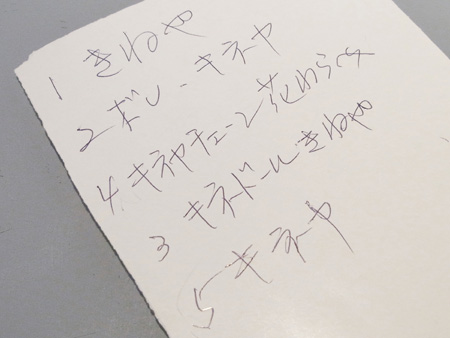 1 きねや
2 ボン・キネヤ
4 キネヤチェーン花わらべ
3 キネドールきねや
5 キネヤ